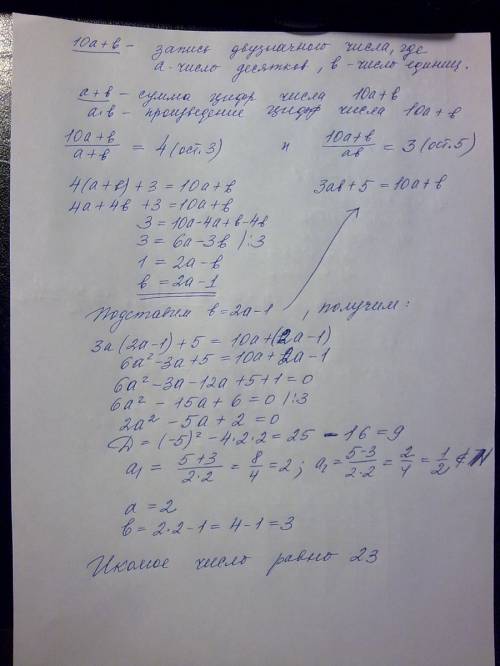 10а+в - запись двузначного числа, где
а-число десятков, в-число единиц.
а+в - сумма цифр числа 10а+в
а·в - произведение цифр числа 10а+в
10а+в/а+в = 4 (ост.3) и 10а+в/ав = 3 (ост.5)
4(а+в)+3 = 10а+в 3ав+5 = 10а+в
4а+4в+3 = 10а+в
3 = 10а-4а+в-4в
3 = 6а-3в |:3
1 = 2а-в
в = 2а-1
Подставим в=2а-1, получим:
3а(2а-1)+5 = 10а+(2а-1)
6а²-3а+5 = 10а+2а-1
6а²-3а-12а+5+1=0
6а²-15а+6=0 |:3
2а²-5а+2=0
D = (-5)²-4·2·2 = 25-16=9
а₁ = 5+3/2·2 = 8/4 = 2; а₂ = 5-3/2·2 = 2/4 = 1/2 ∉ N
а = 2
в = 2·2-1 = 4-1 = 3
Искомое число равно 23